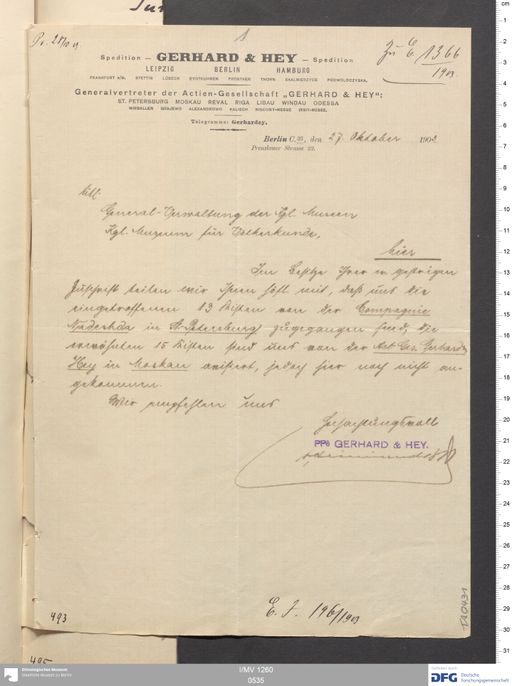 Pr. 28/10 02.
1
Zu E 1366
1903
Spedition — GERHARD & HEY — Spedition
LEIPZIG BERLIN HAMBURG
FRANKFURT a/M. STETTIN LÜBECK EYDTKUHNEN PROSTKEN THORN SKALMIERZYCE PODWOLOCZYSKA.
Generalvertreter der Actien-Gesellschaft „GERHARD & HEY“:
ST. PETERSBURG MOSKAU REVAL RIGA LIBAU WINDAU ODESSA
WIRBALLEN GRAJEWO ALEXANDROWO KALISCH
Telegramme: Gerhardey.
Berlin C. 25, den 27. Oktober 1902
Prenzlauer Strasse
General-Verwaltung der Kgl. Museen
Kgl. Museum für Völkerkunde,
hier
Im Besitze Ihrer w. gestrigen
Zuschrift teilen wir Ihnen höfl. mit, daß uns die
eingetroffenen 13 Kisten von der Compagnie
Nadeschda in St. Petersburg zugegangen sind, die
erwähnten 15 Kisten sind uns von der Act. Ges. Gerhard &
Hey in Moskau avisirt, jedoch hier noch nicht an-
gekommen.
Wir empfehlen uns
Hochachtungsvoll
PPA GERHARD & HEY.
E. J. 196/1903
493
I/MV 1260
0535
Ethnologisches Museum
Staatliche Museen zu Berlin
DFG Deutsche
Forschungsgemeinschaft